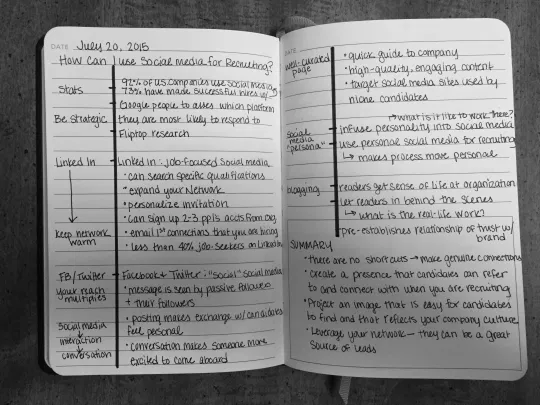 DATE July 20, 2015
How Can I use Social Media for Recruiting?
Stats
92% of U.S. Companies use Social Media
73% have made successful hires w/
Be strategic
Google people to assess which platform
they are most likely to respond to
Fliptop research
Linked In
Linked In: Job-Focused Social media
• can search specific qualifications
• expand your Network
• personalize invitation
• can sign up 2-3 ppl's accts from org.
keep network warm
• email 1st connections that you are hiring
• less than 40% job-seekers on LinkedIn
FB/Twitter
Facebook + Twitter: "Social" Social media
your reach multiplies
• message is seen by passive followers
+ their followers
• posting makes exchange w/ candidates
feel personal
Social media
interaction
conversation
• conversation makes someone more
excited to come aboard
DATE
well-curated page
• quick guide to company
• high-quality, engaging content
• target social media sites used by
niche candidates
↗ what is it like to work there?
social media "persona"
infuse personality into social media
use personal social media for recruiting
↳ makes process more personal
blogging
readers get sense of life at organization
let readers in behind the scenes
↳ what is the real-life work?
pre-establishes relationship of trust w/
brand
SUMMARY
• there are no shortcuts → make genuine connections
• create a presence that candidates can refer
to and connect with when you are recruiting
• Project an image that is easy for candidates
to find and that reflects your company culture
• Leverage your network — they can be a great
source of leads